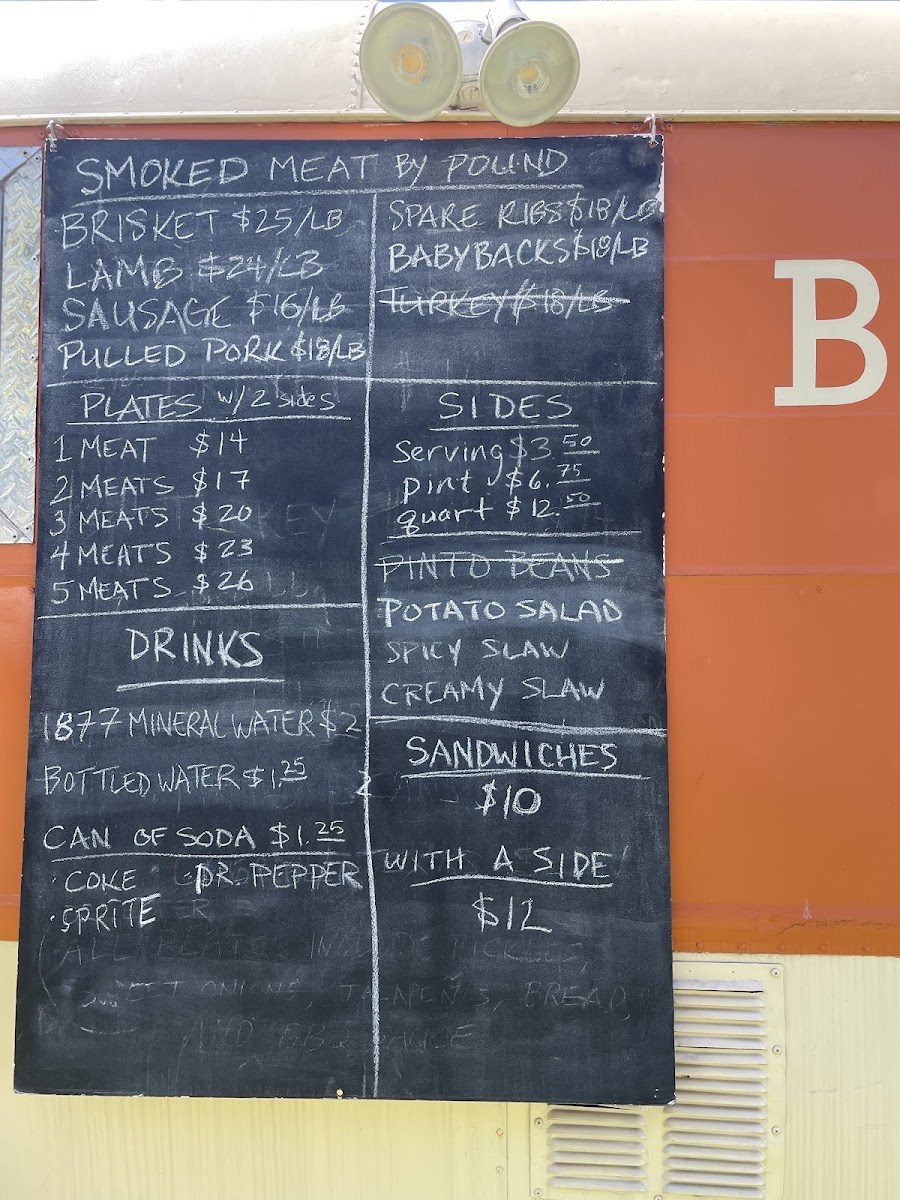 SMOKED MEAT BY POUND
BRISKET $25/LB
LAMB $24/LB
SAUSAGE $16/LB
PULLED PORK $18/LB
SPARE RIBS $18/LB
BABYBACKS $18/LB
TURKEY $18/LB
PLATES w/2 sides
1 MEAT $14
2 MEATS $17
3 MEATS $20
4 MEATS $23
5 MEATS $26
DRINKS
1877 MINERAL WATER $2
BOTTLED WATER $1.25
CAN OF SODA $1.25
· COKE · DR. PEPPER
· SPRITE
SIDES
Serving $3.50
pint $6.75
quart $12.50
PINTO BEANS
POTATO SALAD
SPICY SLAW
CREAMY SLAW
SANDWICHES
$10
WITH A SIDE
$12
ALL PLATES INCLUDE PICKLES,
SWEET ONIONS, JALAPENOS, BREAD
AND BBQ SAUCE
B